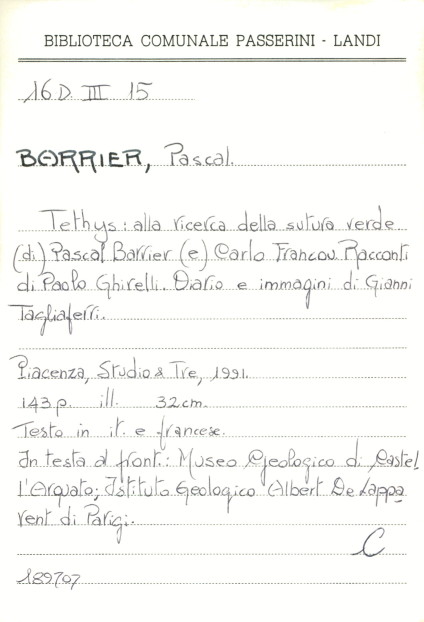 BIBLIOTECA COMUNALE PASSERINI - LANDI
16 D. III 15
BARRIER, Pascal.
Tethys: alla ricerca della sutura verde
(di) Pascal Barrier (e) Carlo Francou. Racconti
di Paolo Ghirelli. Diario e immagini di Gianni
Tagliaferri.
Piacenza, Studio & Tre, 1991.
143 p. ill. 32 cm.
Testo in it. e francese.
In testa al front.: Museo Geologico di Castel
l'Arquato; Istituto Geologico Albert De Lappa
rent di Parigi.
C
189707